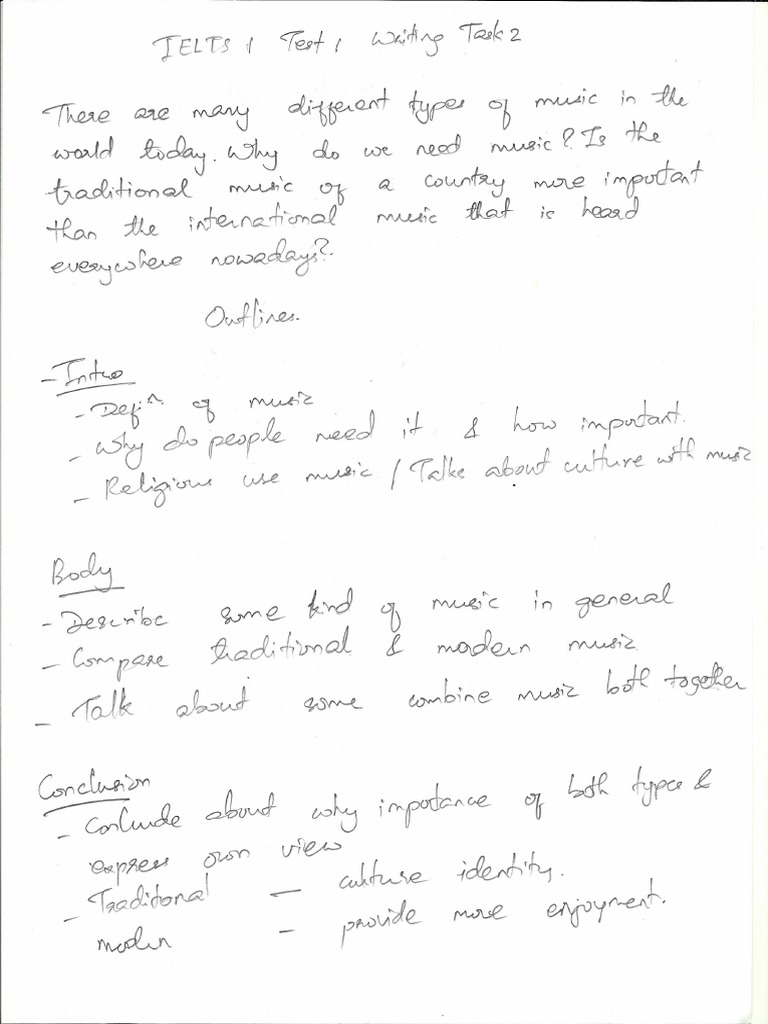 IELTS 1 Test 1 Writing Task 2
There are many different types of music in the
world today. Why do we need music? Is the
traditional music of a country more important
than the international music that is heard
everywhere nowadays?
Outlines.
- Intro
- Defiⁿ of music
- Why do people need it & how important.
- Religious use music / Talks about culture with music
Body
- Describe some kind of music in general
- Compare traditional & modern music
- Talk about some combine music both together
Conclusion
- Conclude about why impotance of both types &
express own view
- Traditional — culture identity.
modern – provide more enjoyment.